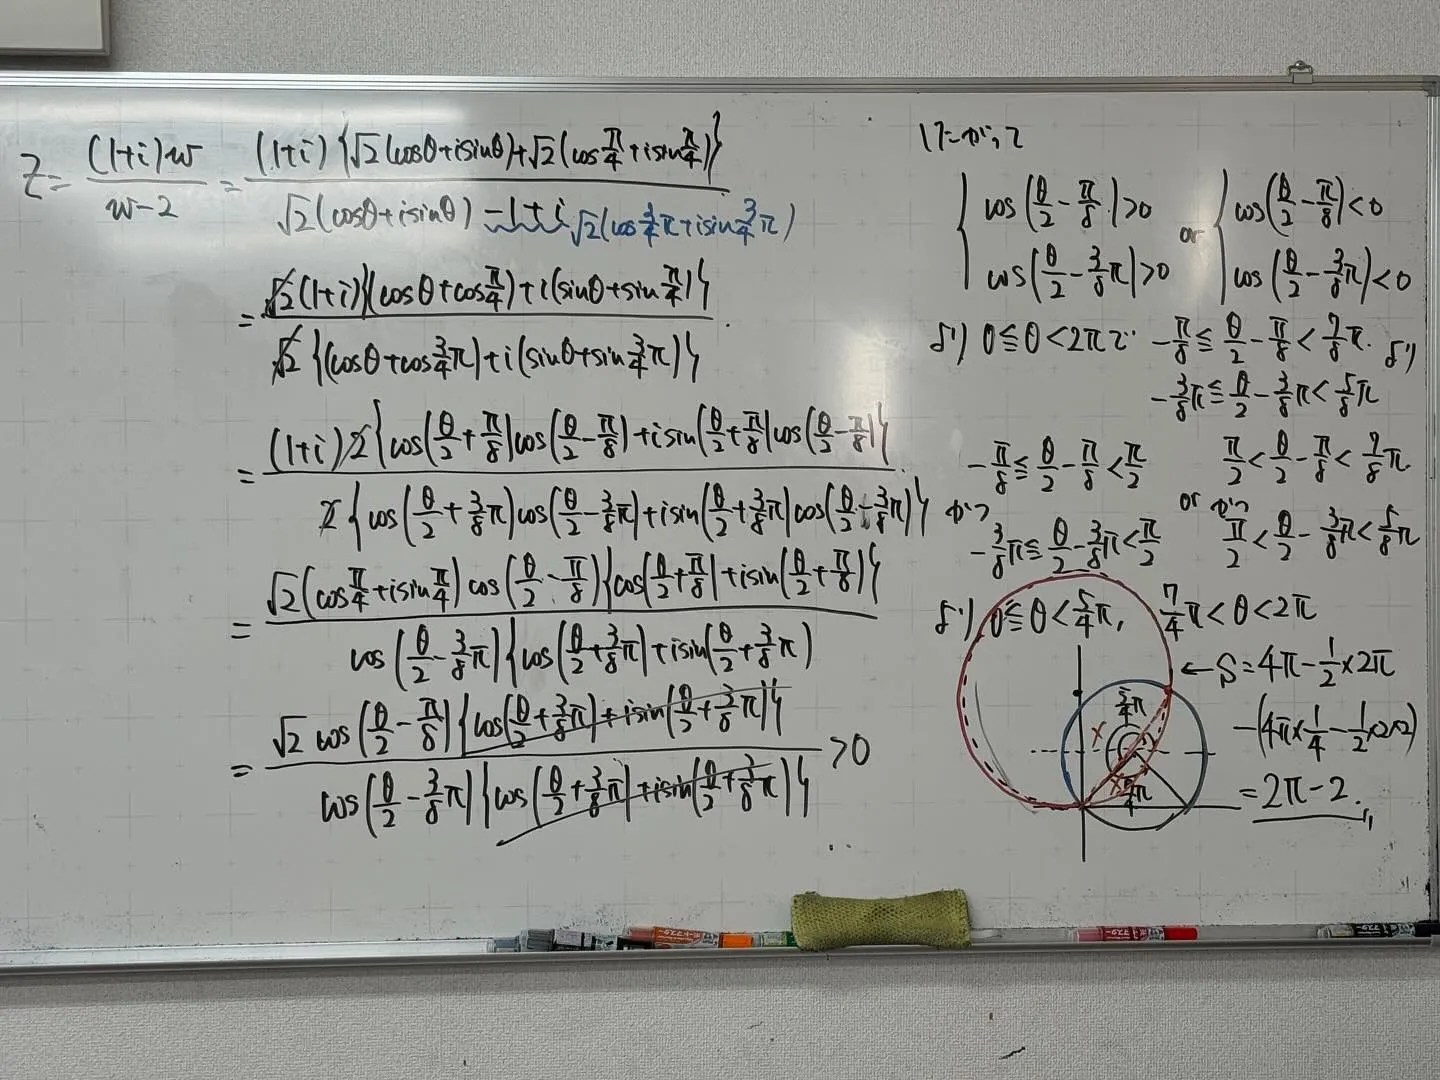 z = \frac{(1+i)w}{w-2} = \frac{(1+i)\{\sqrt{2}(\cosθ+i\sinθ)+\sqrt{2}(\cos\frac{π}{4}+i\sin\frac{π}{4})\}}{\sqrt{2}(\cosθ+i\sinθ)-1+i}
\sqrt{2}(\cos\frac{3}{4}π+i\sin\frac{3}{4}π)
= \frac{\sqrt{2}(1+i)\{(\cosθ+\cos\frac{π}{4})+i(\sinθ+\sin\frac{π}{4})\}}{\sqrt{2}\{(\cosθ+\cos\frac{3}{4}π)+i(\sinθ+\sin\frac{3}{4}π)\}}
= \frac{(1+i)2\{\cos(\frac{θ}{2}+\frac{π}{8})\cos(\frac{θ}{2}-\frac{π}{8})+i\sin(\frac{θ}{2}+\frac{π}{8})\cos(\frac{θ}{2}-\frac{π}{8})\}}{2\{\cos(\frac{θ}{2}+\frac{3}{8}π)\cos(\frac{θ}{2}-\frac{3}{8}π)+i\sin(\frac{θ}{2}+\frac{3}{8}π)\cos(\frac{θ}{2}-\frac{3}{8}π)\}}
= \frac{\sqrt{2}(\cos\frac{π}{4}+i\sin\frac{π}{4})\cos(\frac{θ}{2}-\frac{π}{8})\{\cos(\frac{θ}{2}+\frac{π}{8})+i\sin(\frac{θ}{2}+\frac{π}{8})\}}{\cos(\frac{θ}{2}-\frac{3}{8}π)\{\cos(\frac{θ}{2}+\frac{3}{8}π)+i\sin(\frac{θ}{2}+\frac{3}{8}π)}
= \frac{\sqrt{2}\cos(\frac{θ}{2}-\frac{π}{8})\{\cos(\frac{θ}{2}+\frac{3}{8}π)+i\sin(\frac{θ}{2}+\frac{3}{8}π)\}}{\cos(\frac{θ}{2}-\frac{3}{8}π)\{\cos(\frac{θ}{2}+\frac{3}{8}π)+i\sin(\frac{θ}{2}+\frac{3}{8}π)\}} > 0
したがって
{ \cos(\frac{θ}{2}-\frac{π}{8})>0 or { \cos(\frac{θ}{2}-\frac{π}{8})<0
\cos(\frac{θ}{2}-\frac{3}{8}π)>0 \cos(\frac{θ}{2}-\frac{3}{8}π)<0
より 0≦θ<2πで -\frac{π}{8}≦\frac{θ}{2}-\frac{π}{8}<\frac{7}{8}π. より
-\frac{3}{8}π≦\frac{θ}{2}-\frac{3}{8}π<\frac{5}{8}π
-\frac{π}{8}≦\frac{θ}{2}-\frac{π}{8}<\frac{π}{2} \frac{π}{2}<\frac{θ}{2}-\frac{π}{8}<\frac{7}{8}π
かつ or かつ
-\frac{3}{8}π≦\frac{θ}{2}-\frac{3}{8}π<\frac{π}{2} \frac{π}{2}<\frac{θ}{2}-\frac{3}{8}π<\frac{5}{8}π
より 0≦θ<\frac{5}{4}π, \frac{7}{4}π<θ<2π
←S=4π-\frac{1}{2}×2π
-(4π×\frac{1}{4}-\frac{1}{2}×2×2)
=2π-2.